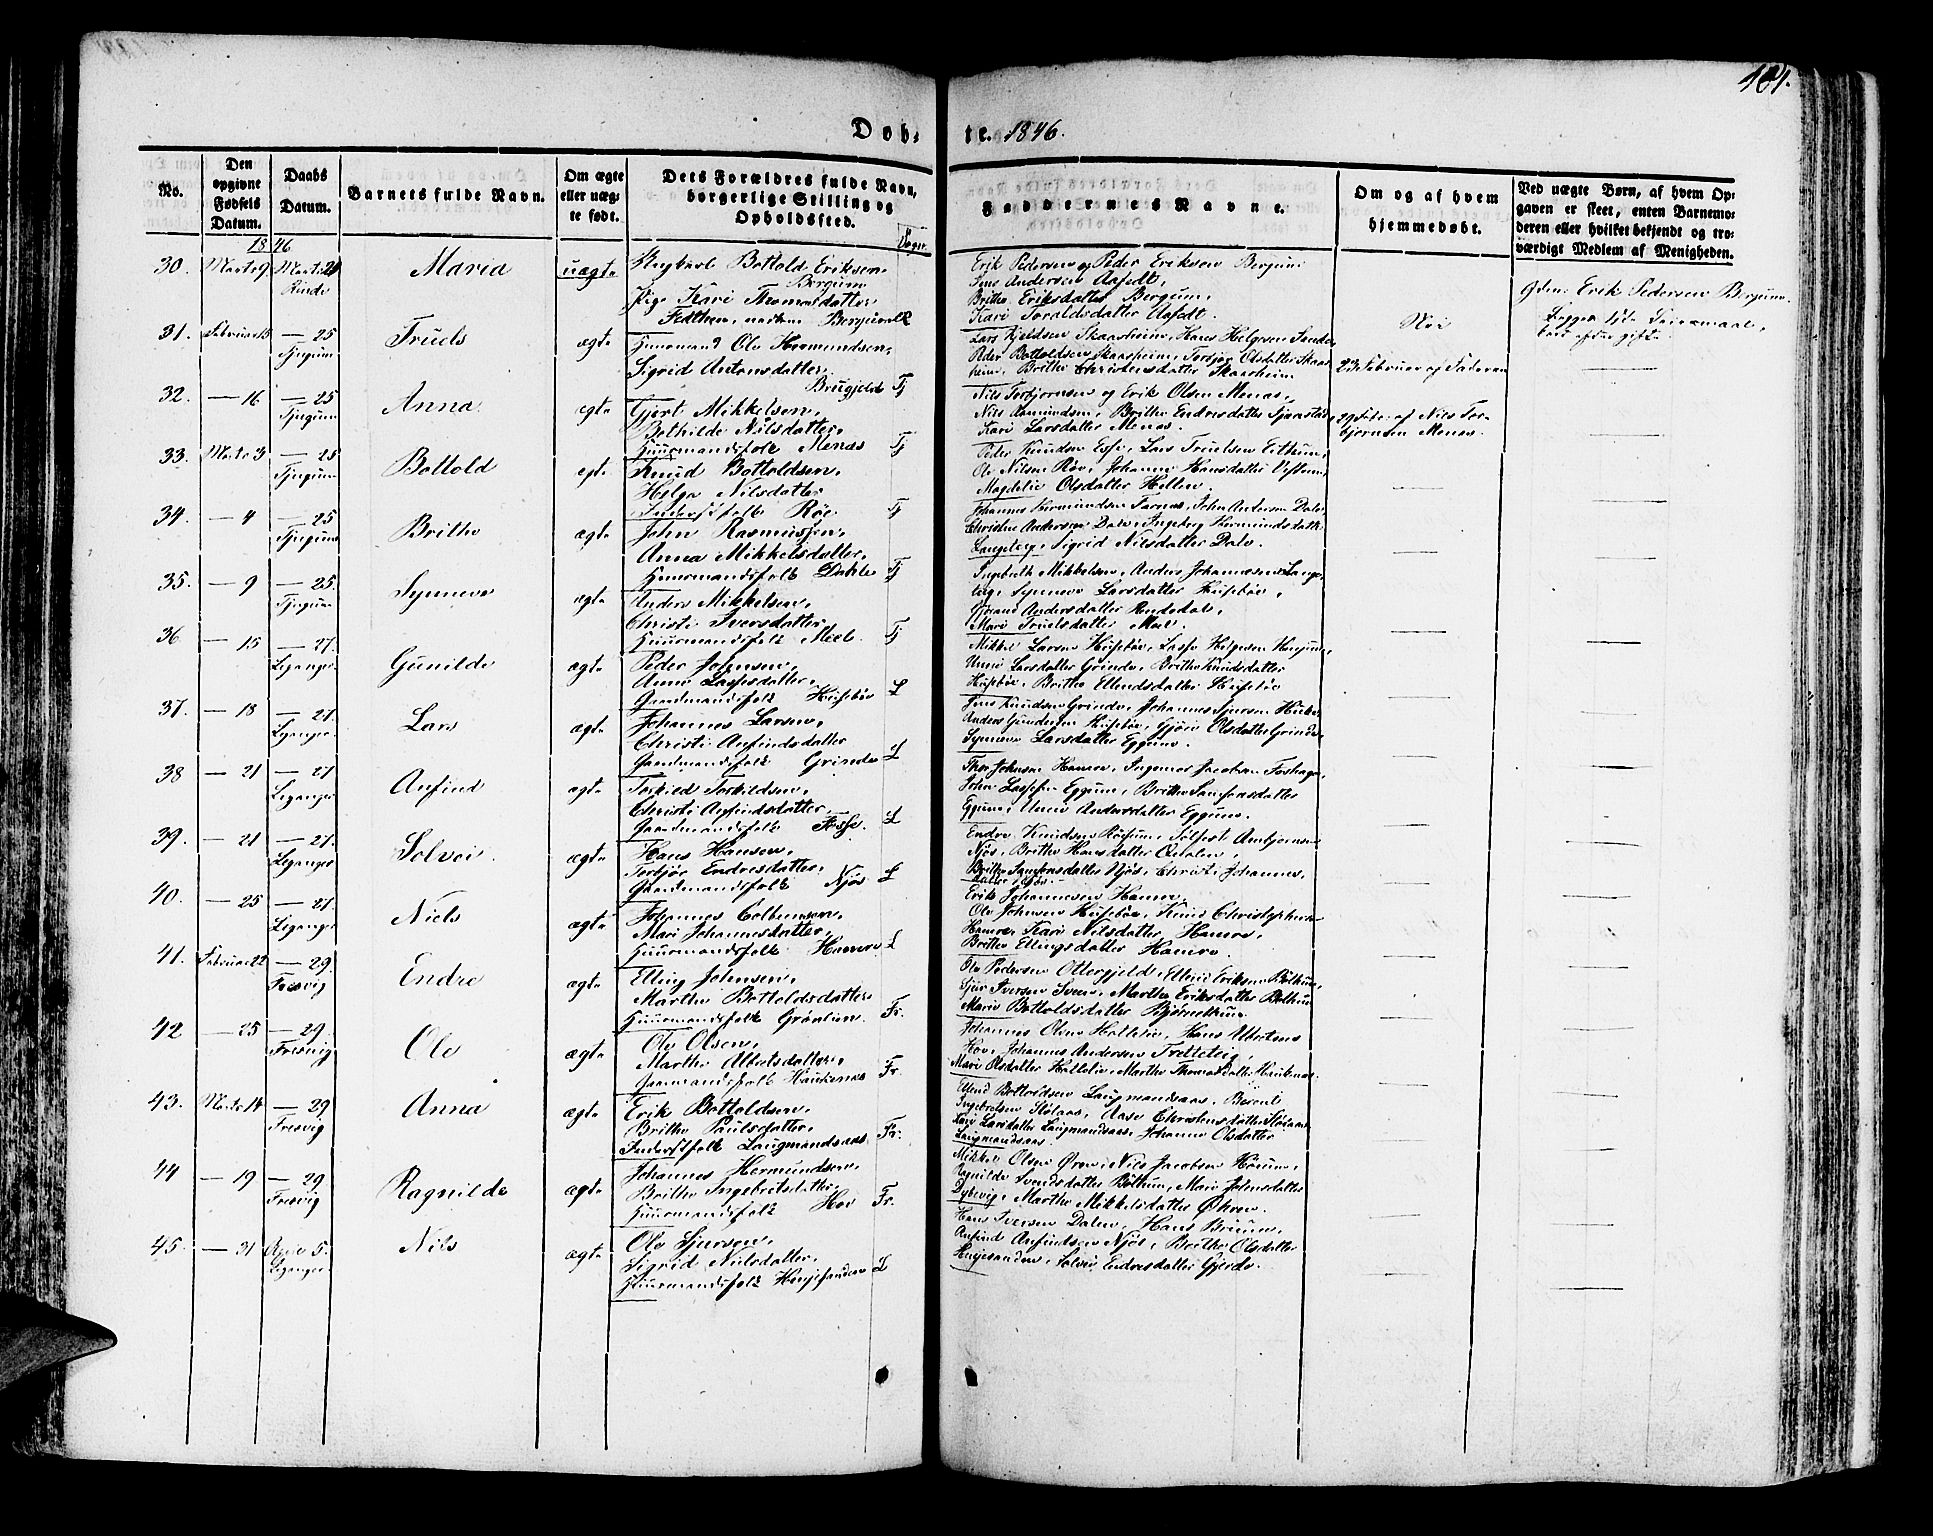 161.
Døb- te. 1846.
No. Den opgivne Fødsels Datum. Daabs Datum. Barnets fulde Navn. Om ægte eller uægte født. Dets Forældres fulde Navn, borgerlige Stilling og Opholdssted. Sogn. Faddernes Navne. Om og af hvem hjemmedøbt. Ved uægte Børn, af hvem Opgaven er skeet, enten Barnemoderen eller hvilket bekjendt og troværdigt Medlem af Menigheden.
1846
30. Marts 9 Marts 21 Rinde Maria uægte Ungkarl Bottold Eriksen Bergum
Pige Kari Thomasdatter
Erik Pedersen og Peder Eriksen Bergum
Jens Andersen Aafedt,
Britha Eriksdatter Bergum,
Kari Toraldsdatter Aafedt.
Nei
Erik Pedersen Bergum.
31. Februar 15 — 25 Tjugum Truels ægte Huusmand Ole Hermundsen,
Sigrid Antonsdatter,
Brugjeld Tj
Lars Kjeldsen Skaasheim, Hans Helgesen
Peder Bottoldsen Skaasheim, Torbjør Olsdatter Skaas
heim, Britha Christensdatter Skaasheim
23 Februar af Faderen
32. — 16 — 25 Tjugum Anna ægte Gjert Mikkelsen,
Bothilde Nilsdatter,
Huusmandsfolk Menas Tj
Nils Torbjørnsen og Erik Olsen Menas,
Nils Aamundsen, Britha Endresdatter
Kari Larsdatter Menas.
af Nils Tor-
bjørnsen Menas.
33. Marts 3 — 25 Tjugum Bottold ægte Knud Bottoldsen,
Helga Nilsdatter
Inderstfolk Røe Tj
Peder Knudsen Esse, Lars Truelsen Eithum,
Ole Nilsen Røe, Johanna Hansdatter
Magdelie Olsdatter Hellen.
34. — 4 — 25 Tjugum Britha ægte John Rasmussen,
Anna Mikkelsdatter,
Huusmandsfolk Dahle Tj
Johannes Hermundsen Farnas, John Andersen Dale,
Christen Andersen Dale, Ingeborg Hermundsdatter
Sigrid Nilsdatter Dale.
35. — 9 — 25 Tjugum Synneva ægte Anders Mikkelsen,
Christi Iversdatter,
Huusmandsfolk Meel Tj
Ingebrith Mikkelsen, Anders Johannesen Lange-
teig, Synneva Larsdatter Husebøe,
Andersdatter
Mari Truelsdatter Meel.
36 — 15 — 27. Leganger Gunilde ægte Peder Johnsen,
Anna Lassesdatter,
Gaardmandsfolk Husebøe L
Mikkel Larsen Husebøe, Lasse Helgesen Henjum,
Unni Larsdatter Grinde, Britha Knudsdatter
Husebøe, Britha Ellendsdatter Husebøe
37. — 18 — 27. Leganger Lars ægte Johannes Larsen,
Christi Anfindsdatter
Gaardmandsfolk Grinde L
Jens Knudsen Grinde, Johannes Sjursen
Anders Gundersen Husebøe, Gjøri Olsdatter Grinde
Synneva Larsdatter Eggum.
38 — 21 — 27 Leganger Anfind ægte Torkild Torkildsen,
Christi Anfindsdatter,
Gaardmandsfolk Fosse. L
Thor Johnsen Hamre, Ingemar Jacobsen
John Lassesen Eggum, Britha Samsonsdatter
Eggum, Unni Andersdatter Eggum.
39. — 21 — 27. Leganger Solvei ægte Hans Hansen,
Torbjør Endresdatter,
Gaardmandsfolk Njøs L
Endre Knudsen Røisum, Solfest Anbjørnsen
Njøs, Britha Hansdatter
Britha Samsonsdatter Njøs, Christi Johannes-
datter Njøs.
40. — 25 — 27. Leganger Niels ægte Johannes Colbensen,
Mari Johannesdatter,
Huusmandsfolk Hamre L
Erik Johannesen Hamre,
Ole Johnsen Husebøe, Knud Christophersen
Hamre, Kari Nilsdatter Hamre,
Britha Ellingsdatter Hamre
41. Februar 22 — 29 Fresvig Endre ægte Elling Johnsen,
Martha Bottoldsdatter
Huusmandsfolk Grønlien. Fr.
Ole Pedersen Ottergjeld, Ellend Eriksen Bøthun,
Sjur Iversen Sveen, Martha Eriksdatter Bøthun
Maria Bottoldsdatter
42 — 25 — 29. Fresvig Ole ægte Ole Olsen,
Martha Albertsdatter,
Gaardmandsfolk Haukenas Fr.
Johannes Olsen Hatlelie, Hans Albertsen
Hov, Johannes Andersen Tretteteig,
Mari Olsdatter Hatlelie, Martha Thomasdatter Haukenas.
43. Marts 14 — 29 Fresvig Anna ægte Erik Bottoldsen,
Britha Paulsdatter,
Inderstfolk Laugmandsaas Fr.
Ellend Bottoldsen Laugmandsaas, Berent
Ingebretsen Stølaas, Aase Christensdatter Stølaas
Kari Larsdatter Laugmandsaas, Johanna Olsdatter
Laugmandsaas.
44 — 19 — 29 Fresvig Ragnilde ægte Johannes Hermundsen,
Britha Ingebritsdatter,
Huusmandsfolk Hov Fr.
Mikkel Olsen Øren, Nils Jacobsen
Ragnilde Svendsdatter Bøthun, Mari Johnsdatter
Dybevig, Martha Mikkelsdatter Øhren.
45. — 31 April 5. Leganger Nils ægte Ole Sjursen,
Sigrid Nilsdatter,
Huusmandsfolk Henjesanden L
Hans Iversen Dalen, Hans
Anfind Anfindsen Njøs, Britha Olsdatter
Henjesanden, Solvei Endresdatter Gjerde.